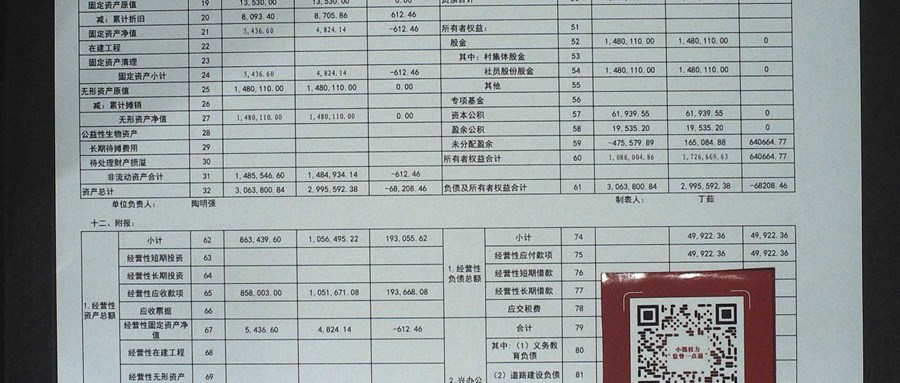 固定资产原值 19 13,530.00 13,530.00 0.00
减：累计折旧 20 8,093.40 8,705.86 612.46
固定资产净值 21 5,436.60 4,824.14 -612.46 所有者权益： 51
在建工程 22 股金 52 1,480,110.00 1,480,110.00 0
固定资产清理 23 其中：村集体股金 53
固定资产小计 24 5,436.60 4,824.14 -612.46 社员股份股金 54 1,480,110.00 1,480,110.00 0
无形资产原值 25 1,480,110.00 1,480,110.00 0.00 其他 55
减：累计摊销 26 专项基金 56
无形资产净值 27 1,480,110.00 1,480,110.00 0.00 资本公积 57 61,939.55 61,939.55 0
公益性生物资产 28 盈余公积 58 19,535.20 19,535.20 0
长期待摊费用 29 未分配盈余 59 -475,579.89 165,084.88 640664.77
待处理财产损溢 30 所有者权益合计 60 1,086,004.86 1,726,669.63 640664.77
非流动资产合计 31 1,485,546.60 1,484,934.14 -612.46
资产总计 32 3,063,800.84 2,995,592.38 -68,208.46 负债及所有者权益合计 61 3,063,800.84 2,995,592.38 -68208.46
单位负责人： 陶明强 制表人： 丁茹
十二、附报：
小计 62 863,439.60 1,056,495.22 193,055.62 小计 74 49,922.36 49,922.36
经营性短期投资 63 经营性应付款项 75 49,922.36 49,922.36
经营性长期投资 64 1.经营性负债总额 经营性短期借款 76
经营性应收款项 65 858,003.00 1,051,671.08 193,668.08 经营性长期借款 77
1.经营性资产总额 应收票据 66 应交税费 78
经营性固定资产净值 67 5,436.60 4,824.14 -612.46 合计 79
经营性在建工程 68 其中：（1）义务教育负债 80
经营性无形资产 69 2.兴办公 （2）道路建设负债 81
小微权力
监督一点通